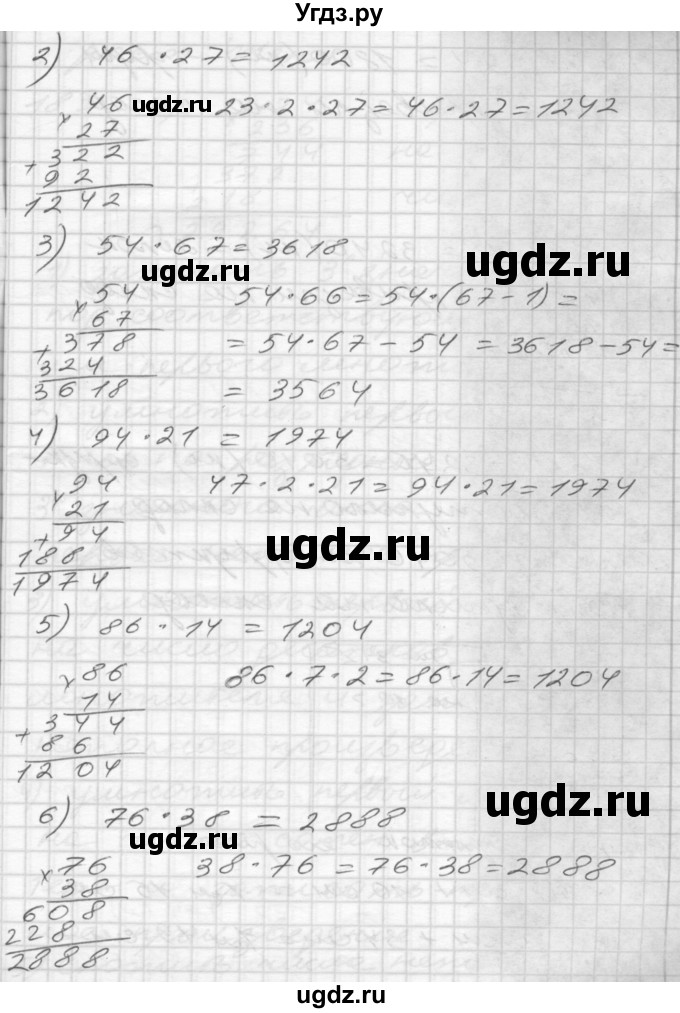 Угдз.ру
2) 46 · 27 = 1242
× 46 ugdz.ru 23 · 2 · 27 = 46 · 27 = 1242
27
+ 322
92
1242
3) 54 · 67 = 3618
ugdz.ru ugdz.ru
× 54 54 · 66 = 54 · (67 - 1) =
67
+ 378 = 54 · 67 - 54 = 3618 - 54 =
324
3618 = 3564
4) 94 · 21 = 1974
× 94 47 · 2 · 21 = 94 · 21 = 1974
21
+ 94 ugdz.ru
188
1974
5) 86 · 14 = 1204
× 86 86 · 7 · 2 = 86 · 14 = 1204
14
+ 344
86
1204
ugdz.ru
6) 76 · 38 = 2888
ugdz.ru
× 76 38 · 76 = 76 · 38 = 2888
38
608
228
2888
ugdz.ru